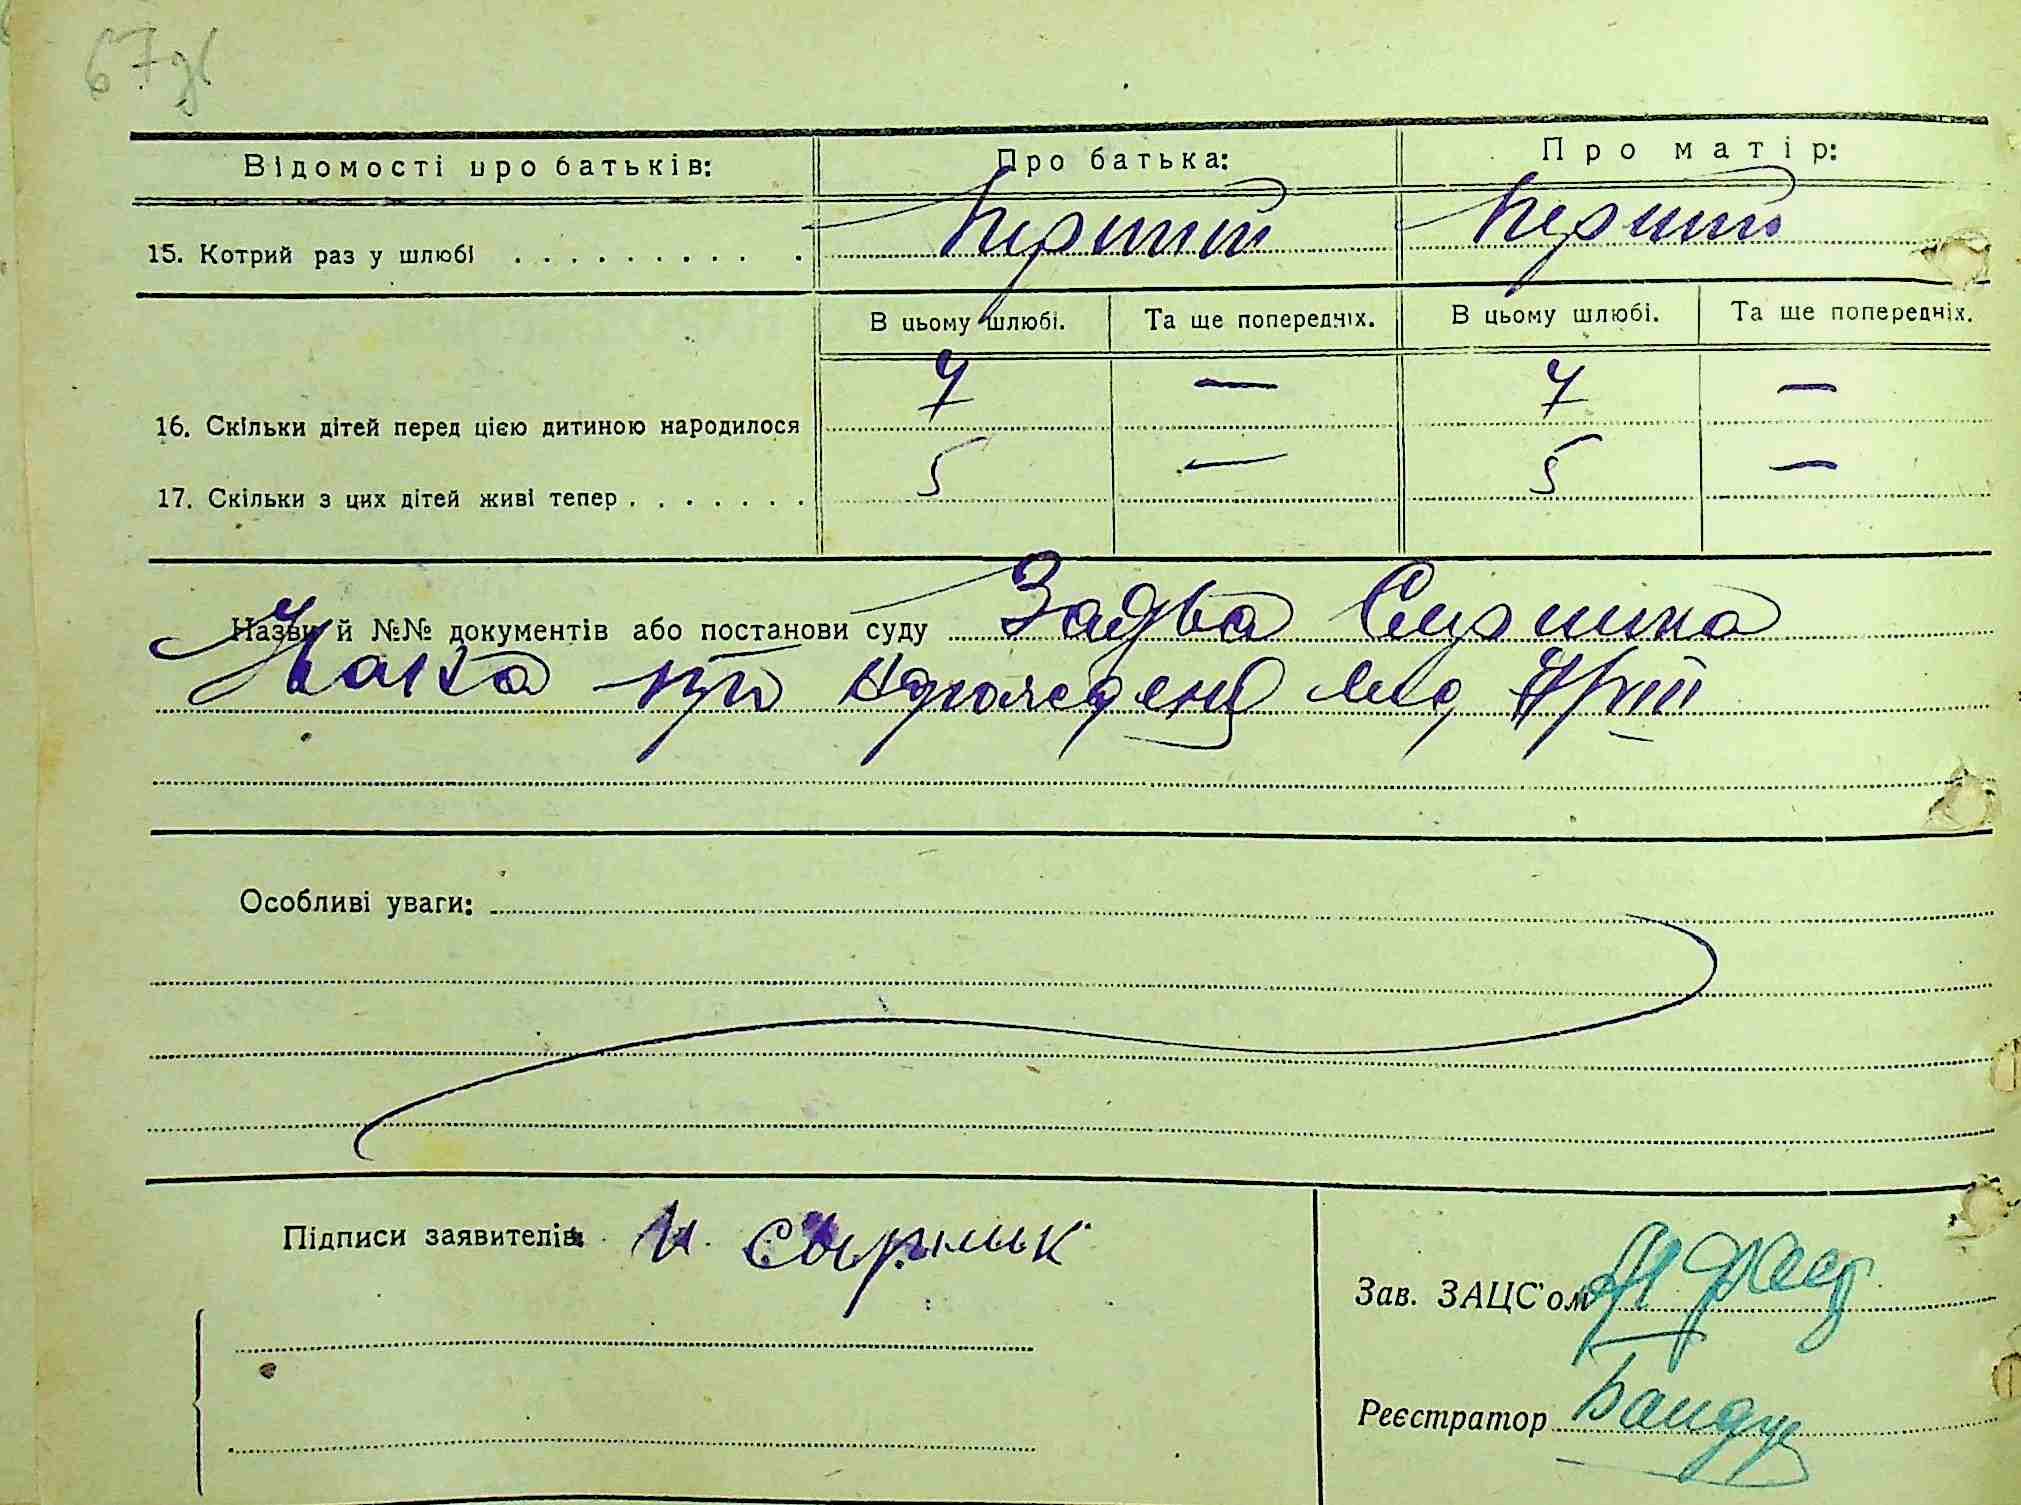 67 зв
Відомості про батьків: Про батька: Про матір:
15. Котрий раз у шлюбі . . . . . . . . . . . Перший Перший
В цьому шлюбі. Та ще попередніх. В цьому шлюбі. Та ще попередніх.
16. Скільки дітей перед цією дитиною народилося 7 — 7 —
17. Скільки з цих дітей живі тепер . . . . . . . 5 — 5 —
Назви й №№ документів або постанови суду Заява
про від
Особливі уваги:
Підписи заявителів: И. Сырник
Зав. ЗАЦС'ом
Реєстратор